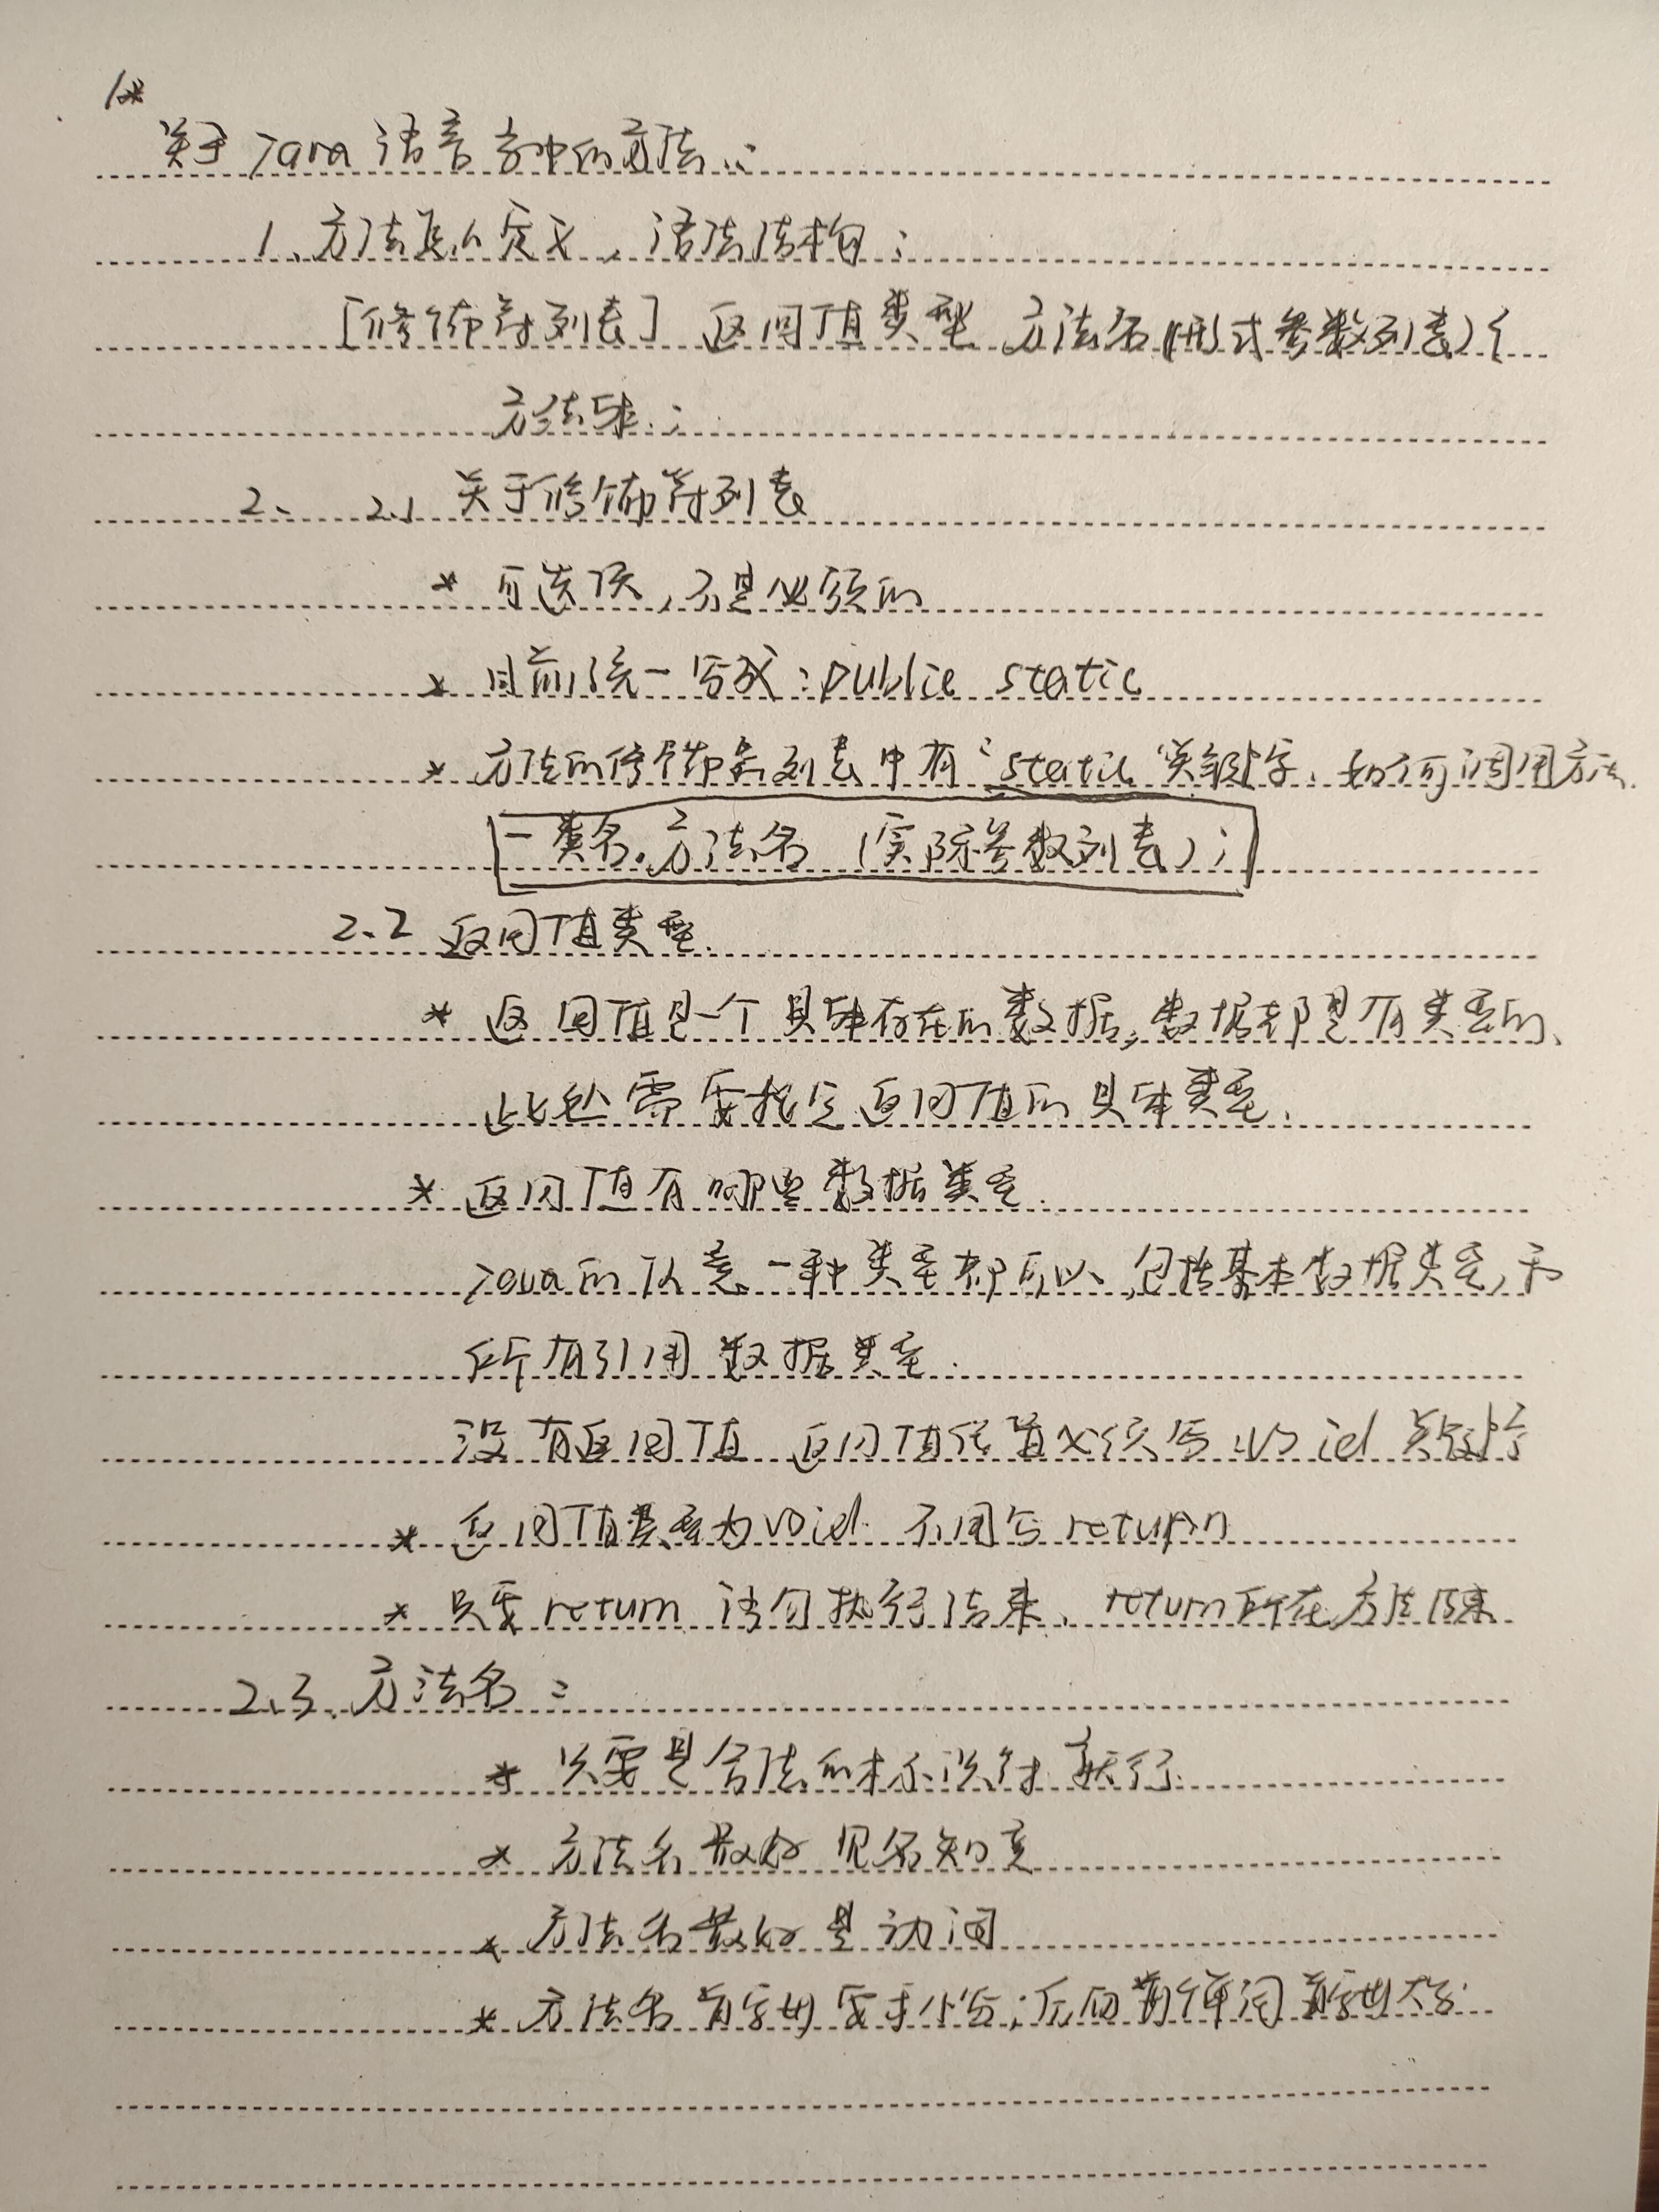 1*
关于Java语言当中的方法：
1、方法怎么定义，语法结构：
[修饰符列表] 返回值类型 方法名(形式参数列表){
方法体；
2、 2.1 关于修饰符列表
* 可选项，不是必须的
* 目前统一写成：public static
* 方法的修饰符列表中有static关键字、如何调用方法.
一类名.方法名（实际参数列表）；
2.2 返回值类型.
* 返回值是一个具体存在的数据，数据都是有类型的、
此处需要指定返回值的具体类型.
* 返回值有哪些数据类型.
Java的任意一种类型都可以、包括基本数据类型，和
所有引用数据类型.
没有返回值 返回值位置必须写 void 关键字
* 返回值类型为void 不用写return
* 只要return 语句执行结束、return所在方法结束
2.3.方法名：
* 只要是合法的标识符就行
* 方法名最好见名知意
* 方法名最好是动词
* 方法名首字母要求小写；后面单词首字母大写